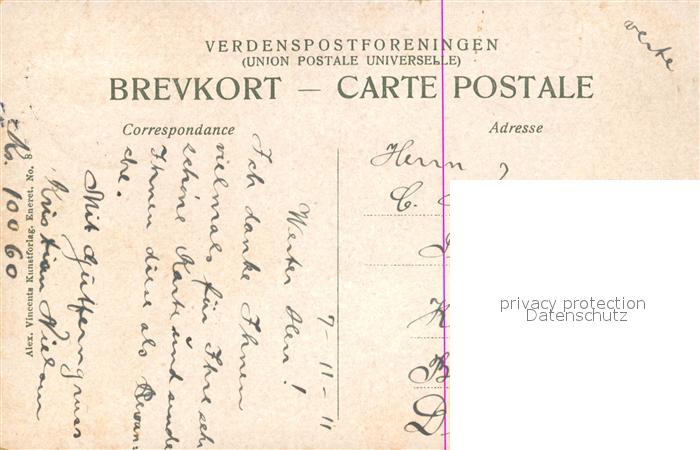 verte
VERDENSPOSTFORENINGEN
(UNION POSTALE UNIVERSELLE)
BREVKORT — CARTE POSTALE
Correspondance
Adresse
7-11-11
Werter Herr!
Ich danke Ihnen
vielmals für Ihre seh
schöne Karte und sende
Ihnen diese als Revan=
che.
Mit Gutferngruss
Kristian Nielsen
No. 10060
Alex. Vincents Kunstforlag, Eneret, No. 8
Herrn
C.
K
B
D
privacy protection
Datenschutz